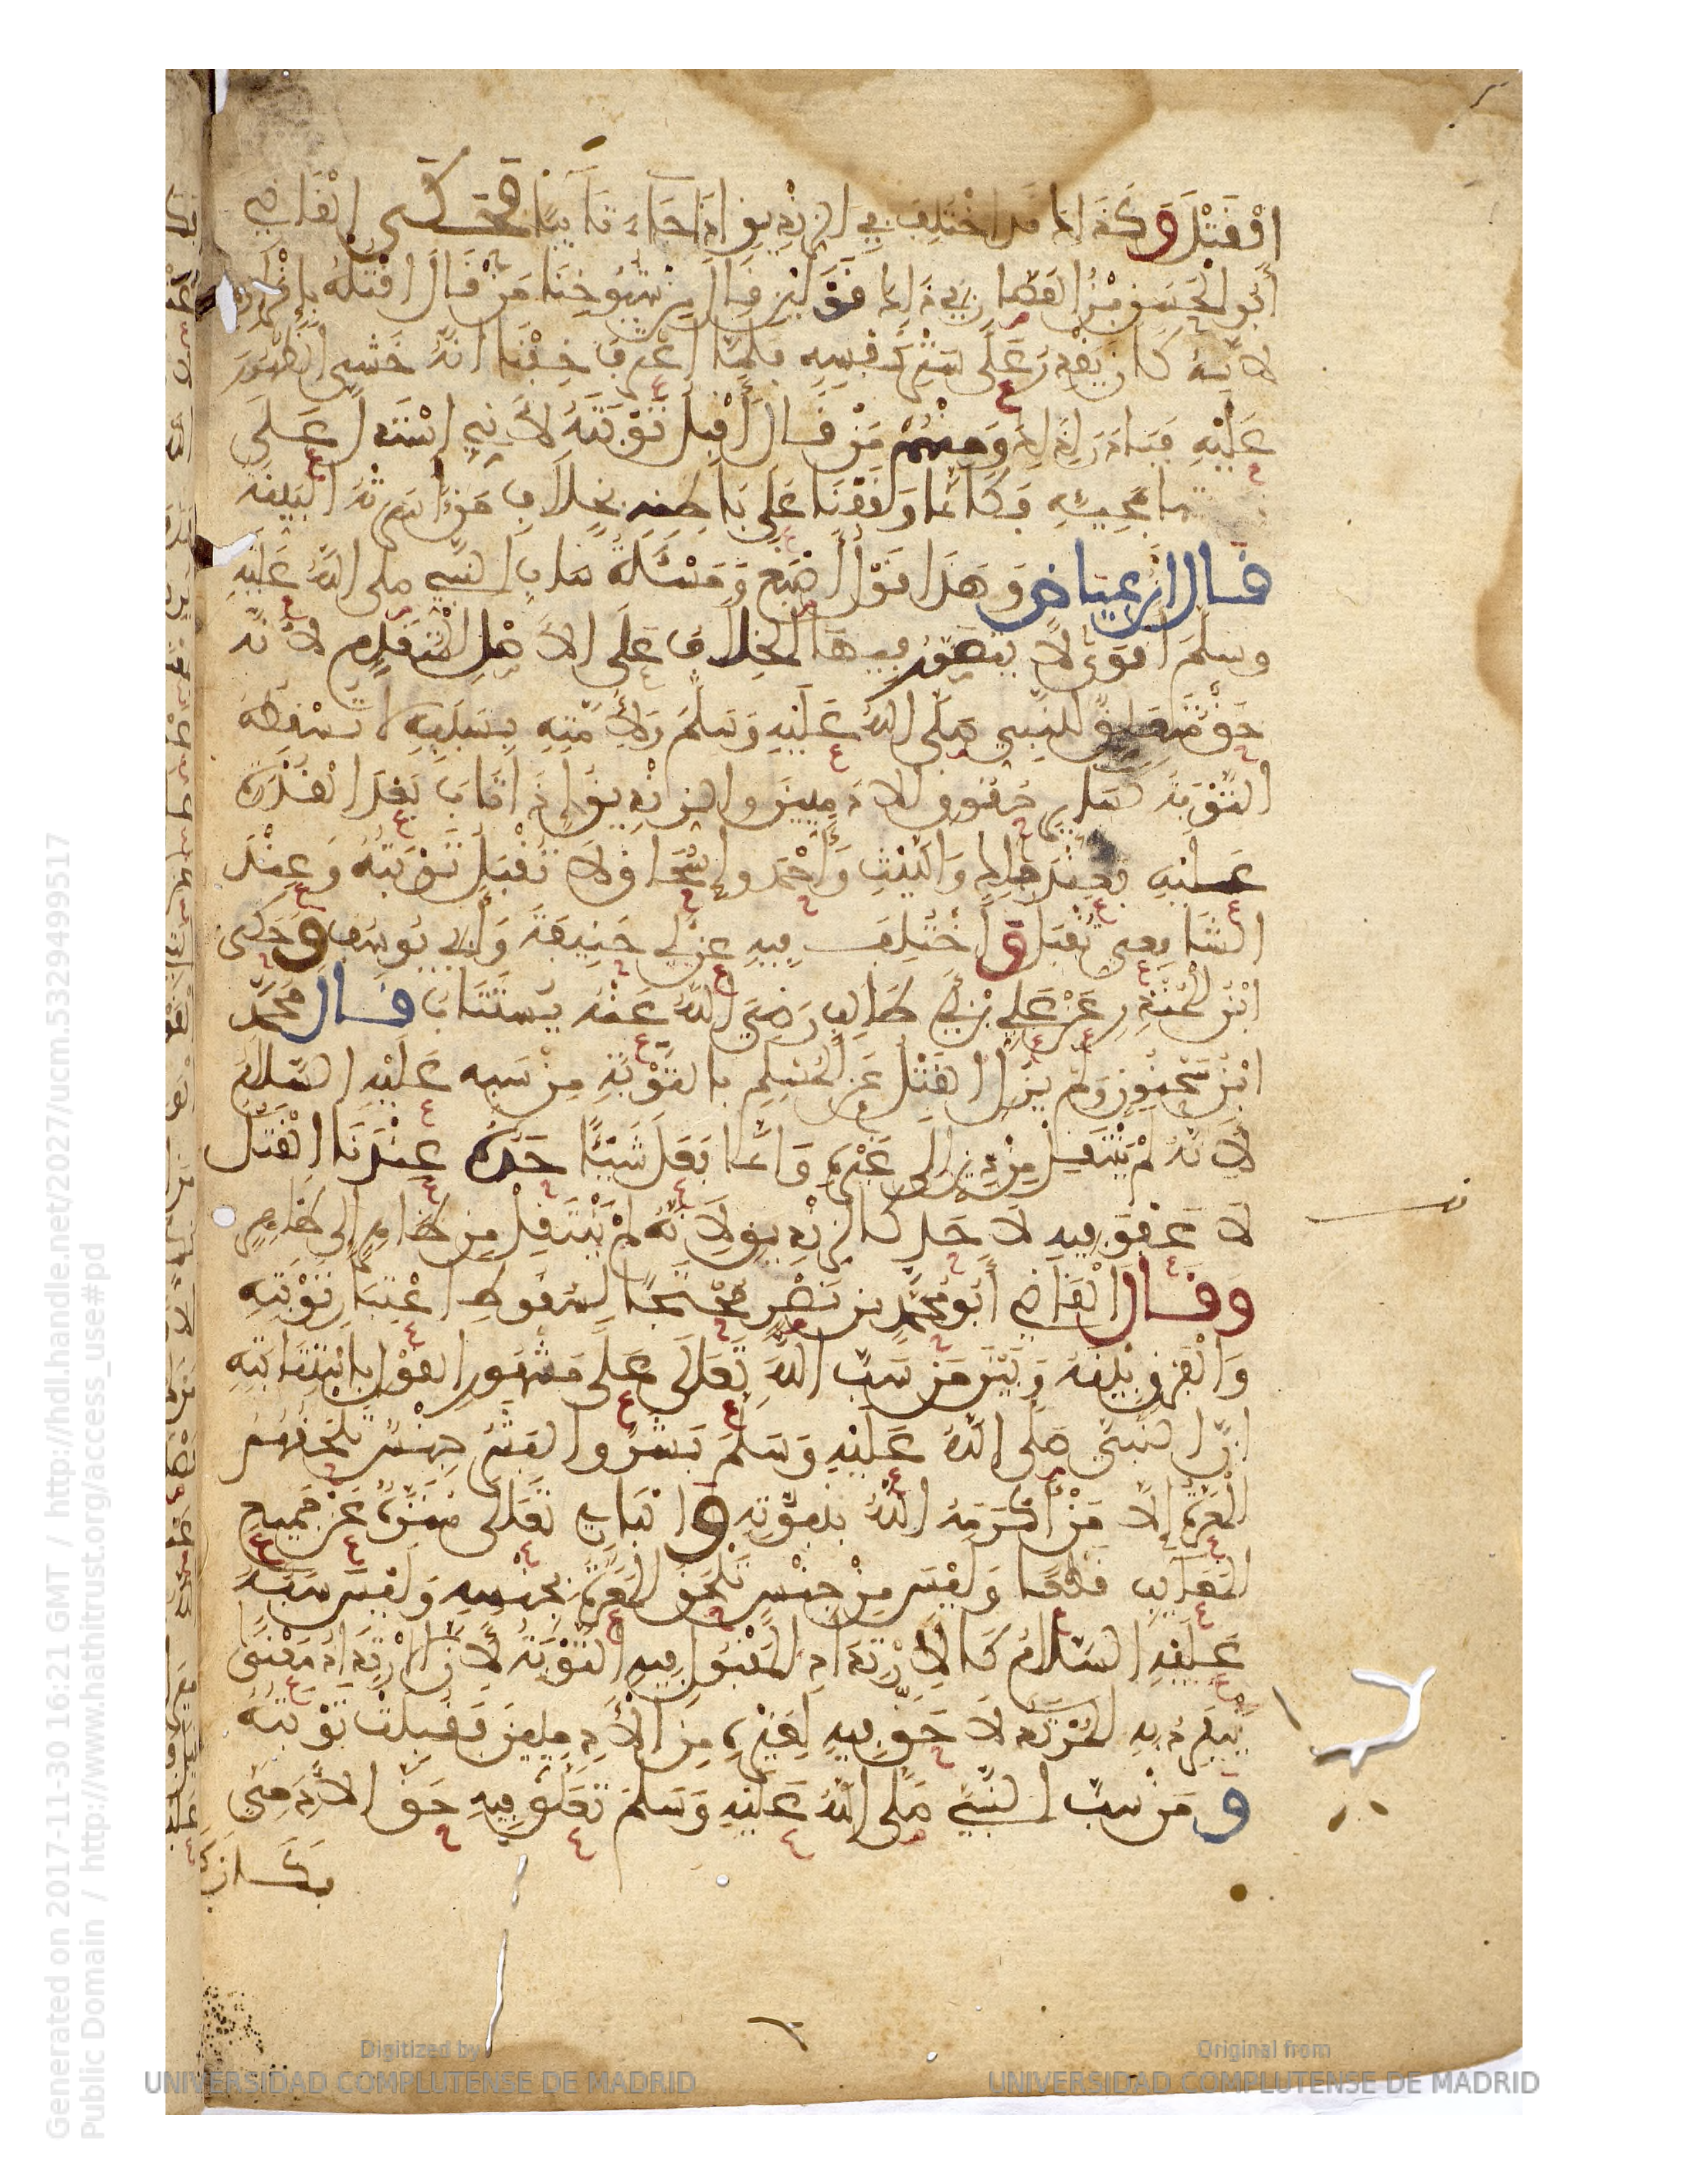 القتل وكذلك قد اختلف في الزنديق اذا جاء تائبا فحكى القاضي
أبو الحسن بن القصار في ذلك قولين قال من شيوخنا من قال اقتله بإقراره
لأنه كان يقدر على ستر نفسه فلما اعترف خفنا أنه خشي الظهور
عليه فبادر لذلك ومنهم من قال أقبل توبته لأني استدل على
صحتها بمجيئه فكأننا وقفنا على باطنه بخلاف من أسرته البينة
قال ابن عياض وهذا قول أصبغ ومسئلة ساب النبي صلى الله عليه
وسلم أقوى لا يتصور فيها الخلاف على الأصل المتقدم لأنه
حق متعلق للنبي صلى الله عليه وسلم ولأمته بسببه لا تسقطه
التوبة كساير حقوق الادميين والزنديق إذا تاب بعد القدرة
عليه فعند مالك والليث وأحمد وإسحاق لا تقبل توبته وعند
الشافعي تقبل واختلف فيه عن أبي حنيفة وأبي يوسف وحكى
ابن المنذر عن علي بن أبي طالب رضي الله عنه يستتاب قال محمد
ابن سحنون ولم يزل القتل عن المسلم بالتوبة من سبه عليه السلام
لأنه لم ينتقل من دين إلى غيره وانما فعل شيئا حده عندنا القتل
لا عفو فيه لأحد كالزنديق لأنه لم ينتقل من ظاهر إلى ظاهر
وقال القاضي أبو محمد بن نصر محتجا لسقوط اعتبار توبته
والفرق بينه وبين من سب الله تعالى على مشهور القول باستتابته
ان النبي صلى الله عليه وسلم بشر والبشر جنس تلحقهم
المعرة إلا من أكرمه الله بنبوته والباري تعالى منزه عن جميع
المعايب قطعا وليس من جنس تلحق المعرة بجنسه وليس سبه
عليه السلام كالارتداد المقبول فيه التوبة لأن الارتداد معنى
ينفرد به المرتد لا حق فيه لغيره من الادميين فقبلت توبته
ومن سب النبي صلى الله عليه وسلم تعلق فيه حق الادمي
فكان
Generated on 2017-11-30 16:21 GMT / http://hdl.handle.net/2027/ucm.5329499517
Public Domain / http://www.hathitrust.org/access_use#pd
Digitized by
UNIVERSIDAD COMPLUTENSE DE MADRID
Original from
UNIVERSIDAD COMPLUTENSE DE MADRID